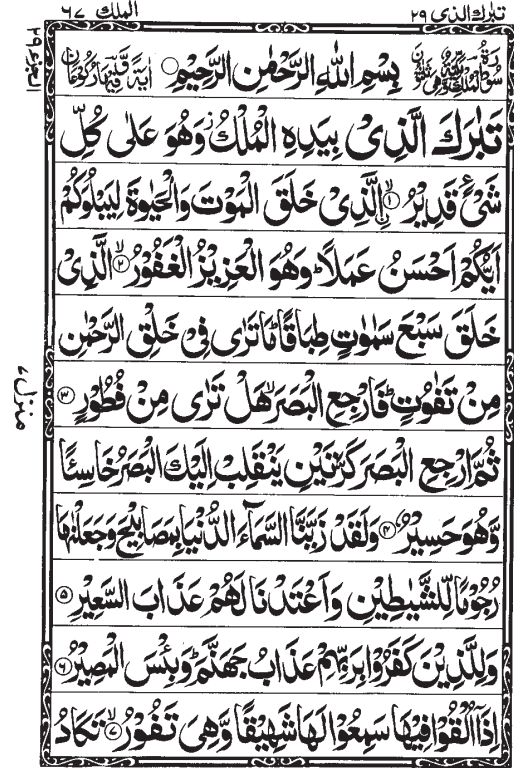 تبٰرك الذی ٢٩ الملك ٦٧
بِسْمِ اللهِ الرَّحْمٰنِ الرَّحِيْمِ
تَبٰرَكَ الَّذِیْ بِيَدِهِ الْمُلْكُ وَهُوَ عَلٰی كُلِّ
شَیْءٍ قَدِيْرُۨ ۙ﴿١﴾ الَّذِیْ خَلَقَ الْمَوْتَ وَالْحَيٰوةَ لِيَبْلُوَكُمْ
اَيُّكُمْ اَحْسَنُ عَمَلًا ؕ وَهُوَ الْعَزِيْزُ الْغَفُوْرُ ۙ﴿٢﴾ الَّذِیْ
خَلَقَ سَبْعَ سَمٰوٰتٍ طِبَاقًا ؕ مَا تَرٰی فِیْ خَلْقِ الرَّحْمٰنِ
مِنْ تَفٰوُتٍ ؕ فَارْجِعِ الْبَصَرَ ۙ هَلْ تَرٰی مِنْ فُطُوْرٍ ﴿٣﴾
ثُمَّ ارْجِعِ الْبَصَرَ كَرَّتَيْنِ يَنْقَلِبْ اِلَيْكَ الْبَصَرُ خَاسِئًا
وَّهُوَ حَسِيْرٌ ﴿٤﴾ وَلَقَدْ زَيَّنَّا السَّمَآءَ الدُّنْيَا بِمَصَابِيْحَ وَجَعَلْنٰهَا
رُجُوْمًا لِّلشَّيٰطِيْنِ وَاَعْتَدْنَا لَهُمْ عَذَابَ السَّعِيْرِ ﴿٥﴾
وَلِلَّذِيْنَ كَفَرُوْا بِرَبِّهِمْ عَذَابُ جَهَنَّمَ ؕ وَبِئْسَ الْمَصِيْرُ ﴿٦﴾
اِذَآ اُلْقُوْا فِيْهَا سَمِعُوْا لَهَا شَهِيْقًا وَّهِیَ تَفُوْرُ ۙ﴿٧﴾ تَكَادُ
منزل ٧